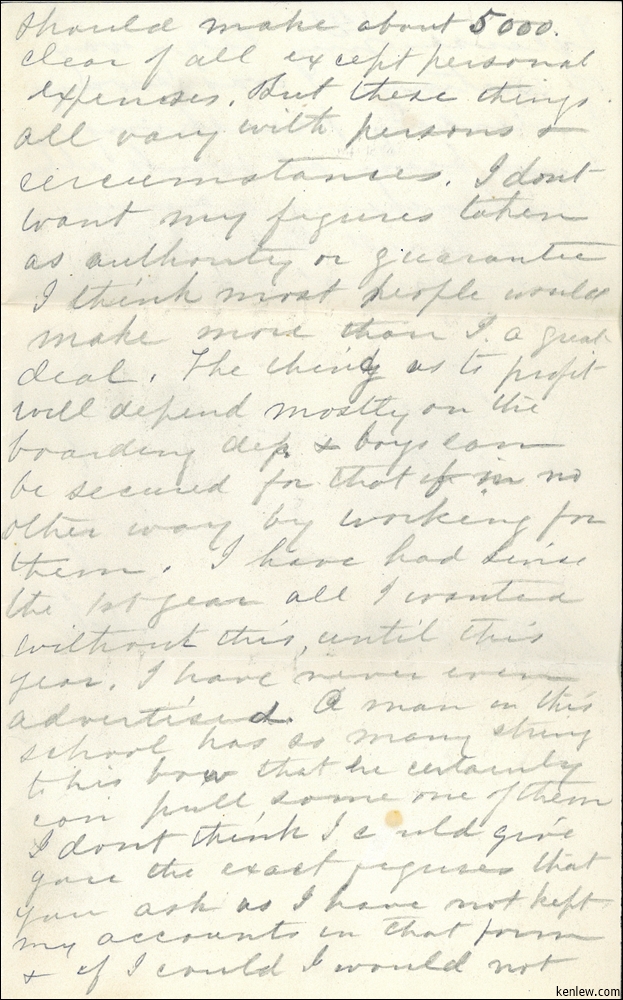 should make about 5000.
clear of all except personal
expenses. But these things
all vary with persons &
circumstances. I dont
want my figures taken
as authority or guarantee
I think most people would
make more than I a great
deal. The thing as to profit
will depend mostly on the
boarding dep & boys can
be secured for that if in no
other way by working for
them. I have had since
the 1st year all I wanted
without this, until this
year. I have never even
advertised. A man in this
school has so many string
to his bow that he certainly
can pull some one of them
I dont think I could give
you the exact figures that
you ask as I have not kept
my accounts in that form
& if I could I would not
kenlew.com